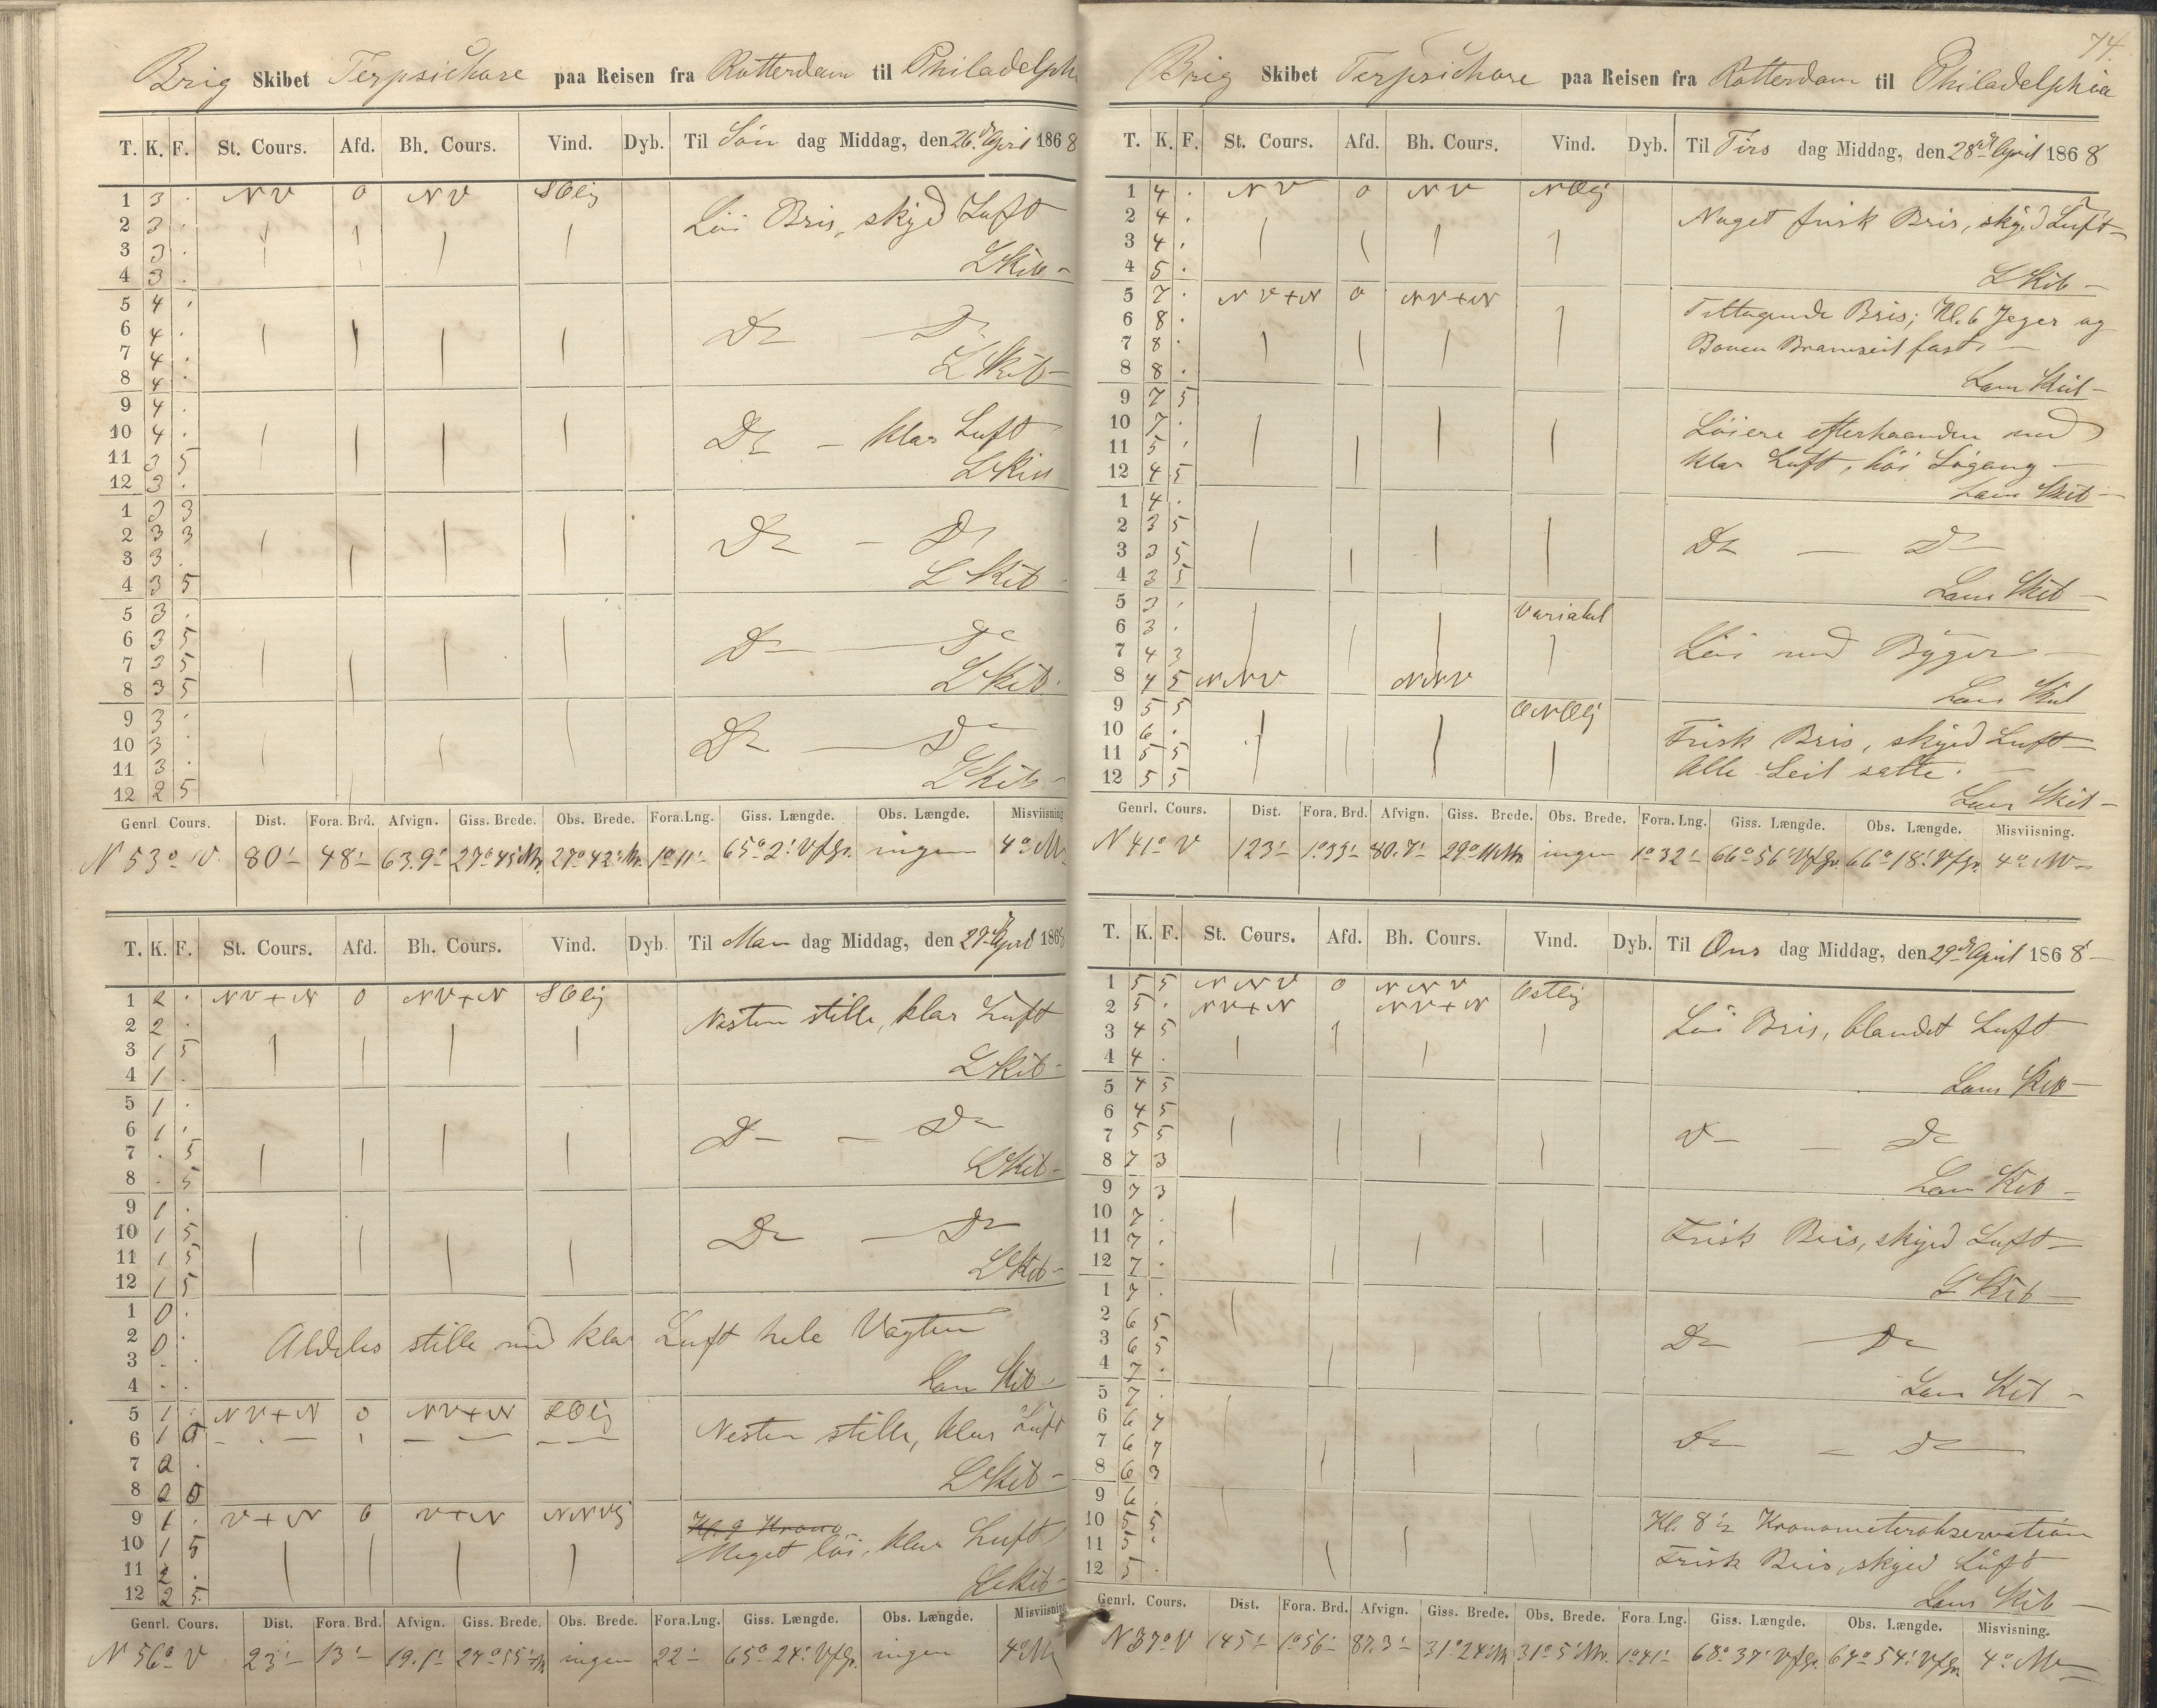 Brig Skibet Terpsichore paa Reisen fra Rotterdam til Philadelph
T. K. F. St. Cours. Afd. Bh. Cours. Vind. Dyb. Til Søn dag Middag, den 26de April 1868
1 3 . NV 0 NV SOlig
2 3 . Löi Bris, skyed Luft
3 3 .
4 3 . L Skib
5 4 .
6 4 . Do — Do
7 4 .
8 4 . L Skib
9 4 .
10 4 . Do — klar Luft
11 3 5
12 3 .
1 3 3
2 3 3 Do — Do
3 3 .
4 3 5 L Skib
5 3 .
6 3 5 Do — Do
7 3 5
8 3 5 L Skib
9 3 .
10 3 . Do — Do
11 3 .
12 2 5 L Skib
Genrl. Cours. Dist. Fora. Brd. Afvign. Giss. Brede. Obs. Brede. Fora.Lng. Giss. Længde. Obs. Længde. Misviisning
N 53° V. 80' 48' 63.9' 27° 45' Nr. 27° 42' Nr. 1° 11' 65° 2' VfGr. ingen 4°
T. K. F. St. Cours. Afd. Bh. Cours. Vind. Dyb. Til Man dag Middag, den 27de April 1868
1 2 . NV+N 0 NV+N SOlig
2 2 . Nesten stille, klar Luft
3 1 5
4 1 . L Skib
5 1 .
6 1 . Do — Do
7 . 5
8 . 5 L Skib
9 1 .
10 1 5 Do — Do
11 1 5
12 1 5 L Skib
1 0 .
2 0 . Aldeles stille med klar Luft hele Vagten
3 . .
4 . . Lens Skib
5 1 . NV+N 0 NV+N SOlig
6 1 5 Nesten stille, klar Luft
7 2 .
8 2 5 L Skib
9 1 . V+N 0 V+N NNVlig Kl. 9 Krono
10 1 5 Meget löi, klar Luft
11 2 .
12 2 5 L Skib
Genrl. Cours. Dist. Fora. Brd. Afvign. Giss. Brede. Obs. Brede. Fora.Lng. Giss. Længde. Obs. Længde. Misviisning
N 56° V 23' 13' 19.1' 27° 55' Nr ingen 22' 65° 24' VfGr. ingen 4°
74.
Brig Skibet Terpsichore paa Reisen fra Rotterdam til Philadelphia
T. K. F. St. Cours. Afd. Bh. Cours. Vind. Dyb. Til Tirs dag Middag, den 28de April 1868
1 4 . NV 0 NV NOlig
2 4 . Noget frisk Bris, skyed Luft
3 4 .
4 5 . L Skib
5 7 . NV+N 0 NV+N
6 8 . Tiltagende Bris; Kl. 6 Jeger og
7 8 . Boven Bramseil fast
8 8 . Lens Skib
9 7 5
10 7 . Löiere efterhaanden med
11 5 . klar Luft, höi Sögang
12 4 5 Lens Skib
1 4 .
2 3 5 Do — Do
3 3 5
4 3 5 Lens Skib
5 3 . Variabel
6 3 . Löi med Byger
7 4 3
8 4 5 NNV NNV Lens Skib
9 5 5 ONOlig
10 6 . Frisk Bris, skyed Luft
11 5 5 Alle Seil satte.
12 5 5 Lens Skib
Genrl. Cours. Dist. Fora. Brd. Afvign. Giss. Brede. Obs. Brede. Fora. Lng. Giss. Længde. Obs. Længde. Misviisning.
N 41° V 123' 1° 33' 80.7' 29° Nr. ingen 1° 32' 66° 56' VfGr. 66° 18' VfGr. 4°
T. K. F. St. Cours. Afd. Bh. Cours. Vind. Dyb. Til Ons dag Middag, den 29de April 1868
1 5 5 NNV 0 NNV Ostlig
2 5 . NV+N NV+N
3 4 5 Löi Bris, blandet Luft
4 4 . Lens Skib
5 4 5
6 4 5
7 5 5 Do — Do
8 7 3 Lens Skib
9 7 3
10 7 .
11 7 . Frisk Bris, skyed Luft
12 7 . L Skib
1 7 .
2 6 5
3 6 5 Do — Do
4 7 . Lens Skib
5 7 .
6 6 7
7 6 7 Do — Do
8 6 3
9 6 .
10 5 5 Kl. 8½ Kronometerobservation
11 5 . Frisk Bris, skyed Luft
12 5 . Lens Skib
Genrl. Cours. Dist. Fora. Brd. Afvign. Giss. Brede. Obs. Brede. Fora. Lng. Giss. Længde. Obs. Længde. Misvisning.
N 37° V 145' 1° 56' 87.3' 31° 24' Nr 31° 5' Nr. 1° 41' 68° 37' VfGr. 67° 54' VfGr. 4°